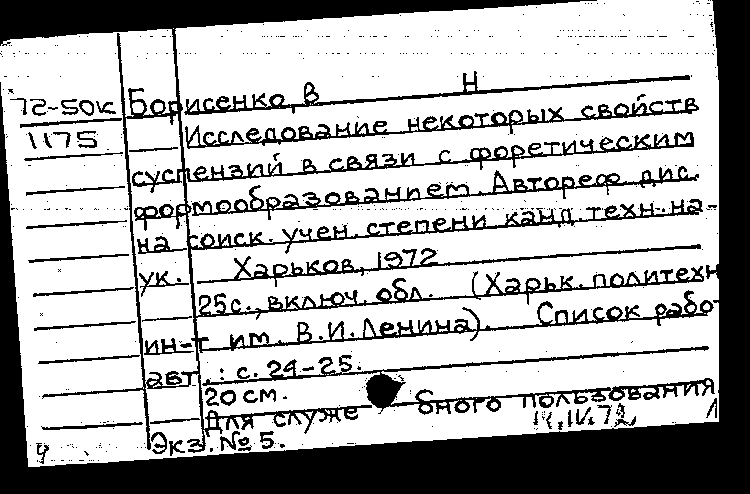 72-50к Борисенко, В Н
1175 Исследование некоторых свойств
суспензий в связи с форетическим
формообразованием. Автореф. дис.
на соиск. учен. степени канд. техн. на-
ук. Харьков, 1972
25с., включ. обл. (Харьк. политехн
ин-т им. В.И. Ленина). Список работ
авт.: с. 24-25.
20 см.
Для служебного пользования
Экз. № 5.